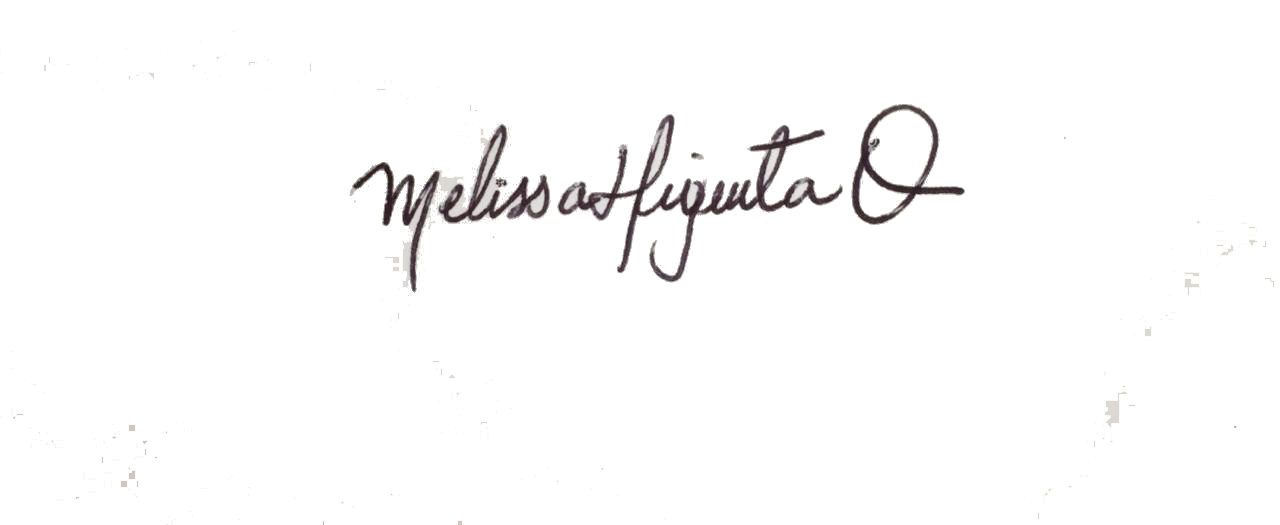 Melissa Higuita O